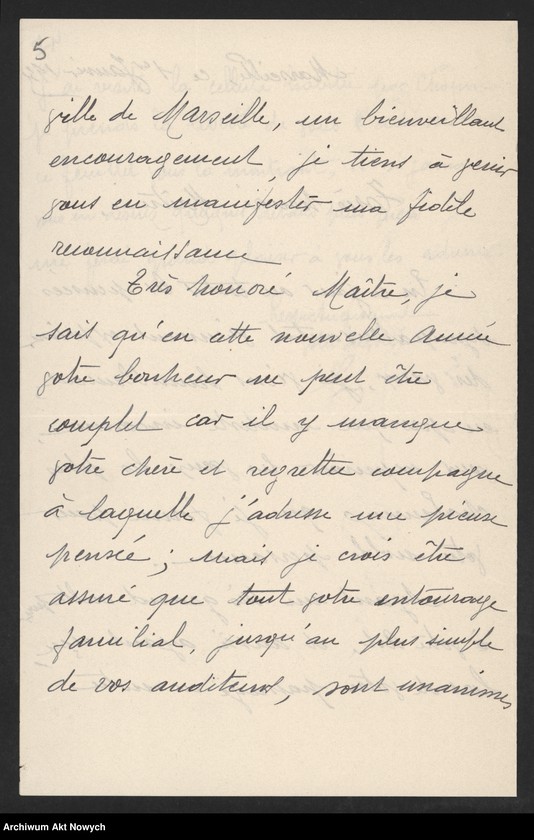 5
ville de Marseille, un bienveillant
encouragement, je tiens à venir
vous en manifester ma fidèle
reconnaissance
Très honoré Maître, je
sais qu'en cette nouvelle Année
votre bonheur ne peut être
complet car il y manque
votre chère et regrettée compagne
à laquelle j'adresse une pieuse
pensée ; mais je crois être
assuré que tout votre entourage
familial, jusqu'au plus simple
de vos auditeurs, sont unanimes
Archiwum Akt Nowych